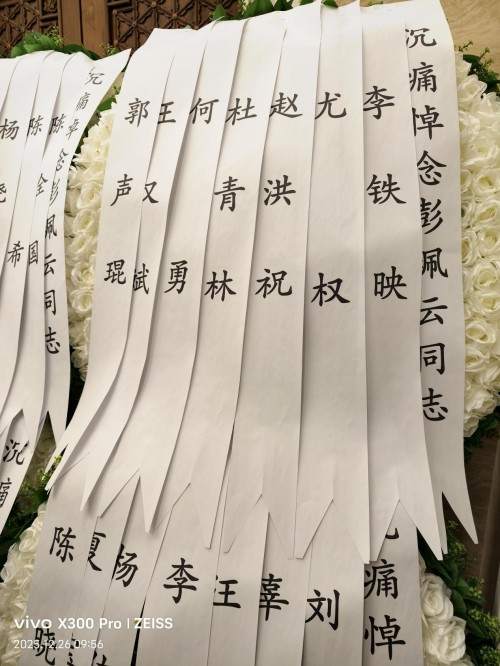 沉痛悼念彭珮云同志
李铁映
尤权
赵洪祝
杜青林
何勇
王汉斌
郭声琨
沉痛悼念彭珮云同志
陈全国
陈希
杨晓
沉痛悼
刘
辜
汪
李
杨
夏
陈晓
沉痛
vivo X300 Pro | ZEISS
2025.12.26 09:56